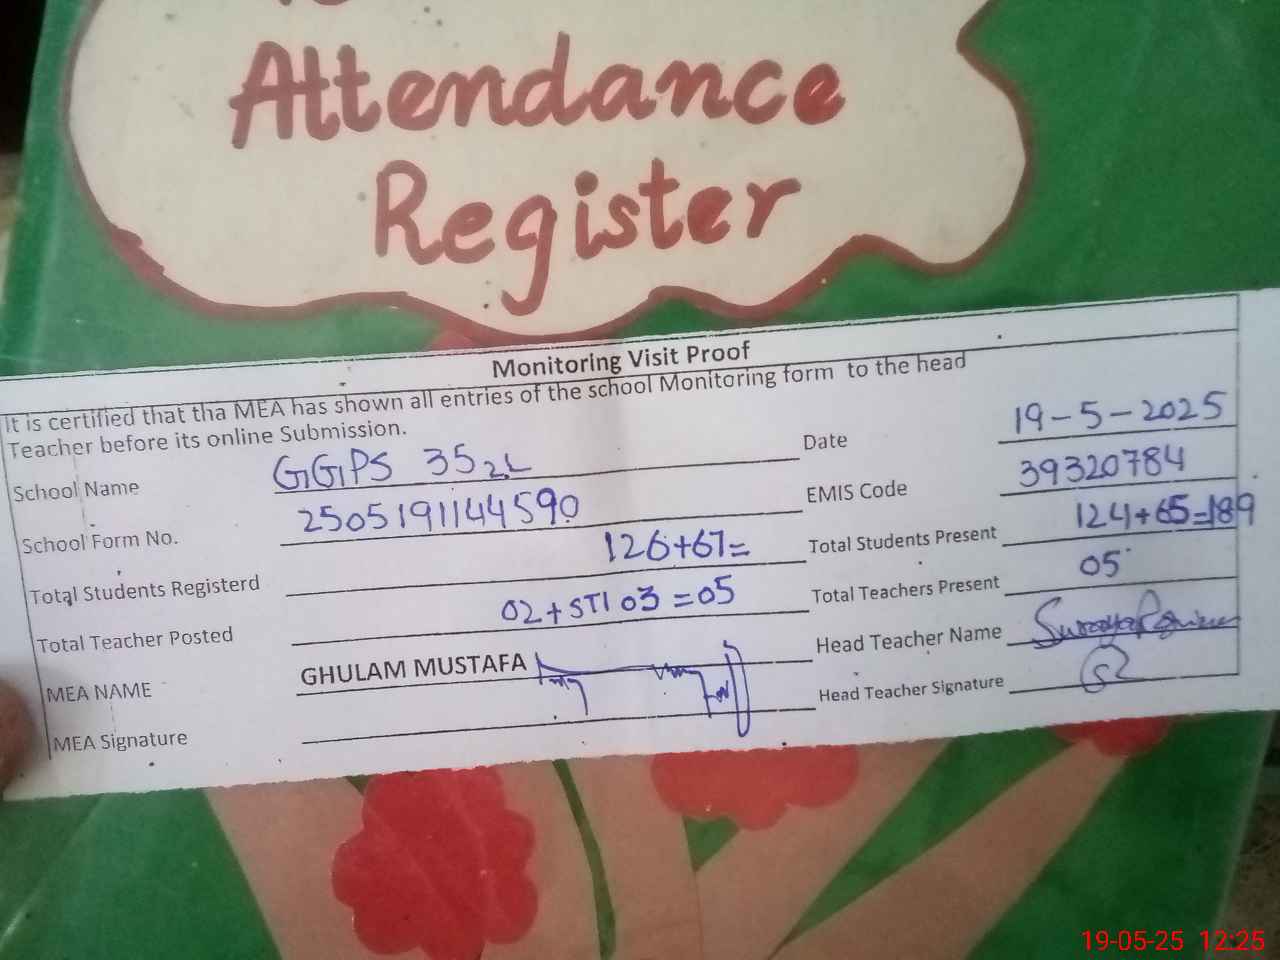 Attendance
Register
Monitoring Visit Proof
It is certified that tha MEA has shown all entries of the school Monitoring form to the head
Teacher before its online Submission.
School Name GGPS 35 2L Date 19-5-2025
School Form No. 2505191144590 EMIS Code 39320784
Total Students Registerd 126+67= Total Students Present 124+65=189
Total Teacher Posted 02+STI 03=05 Total Teachers Present 05
MEA NAME GHULAM MUSTAFA Head Teacher Name
MEA Signature Head Teacher Signature
19-05-25 12:25